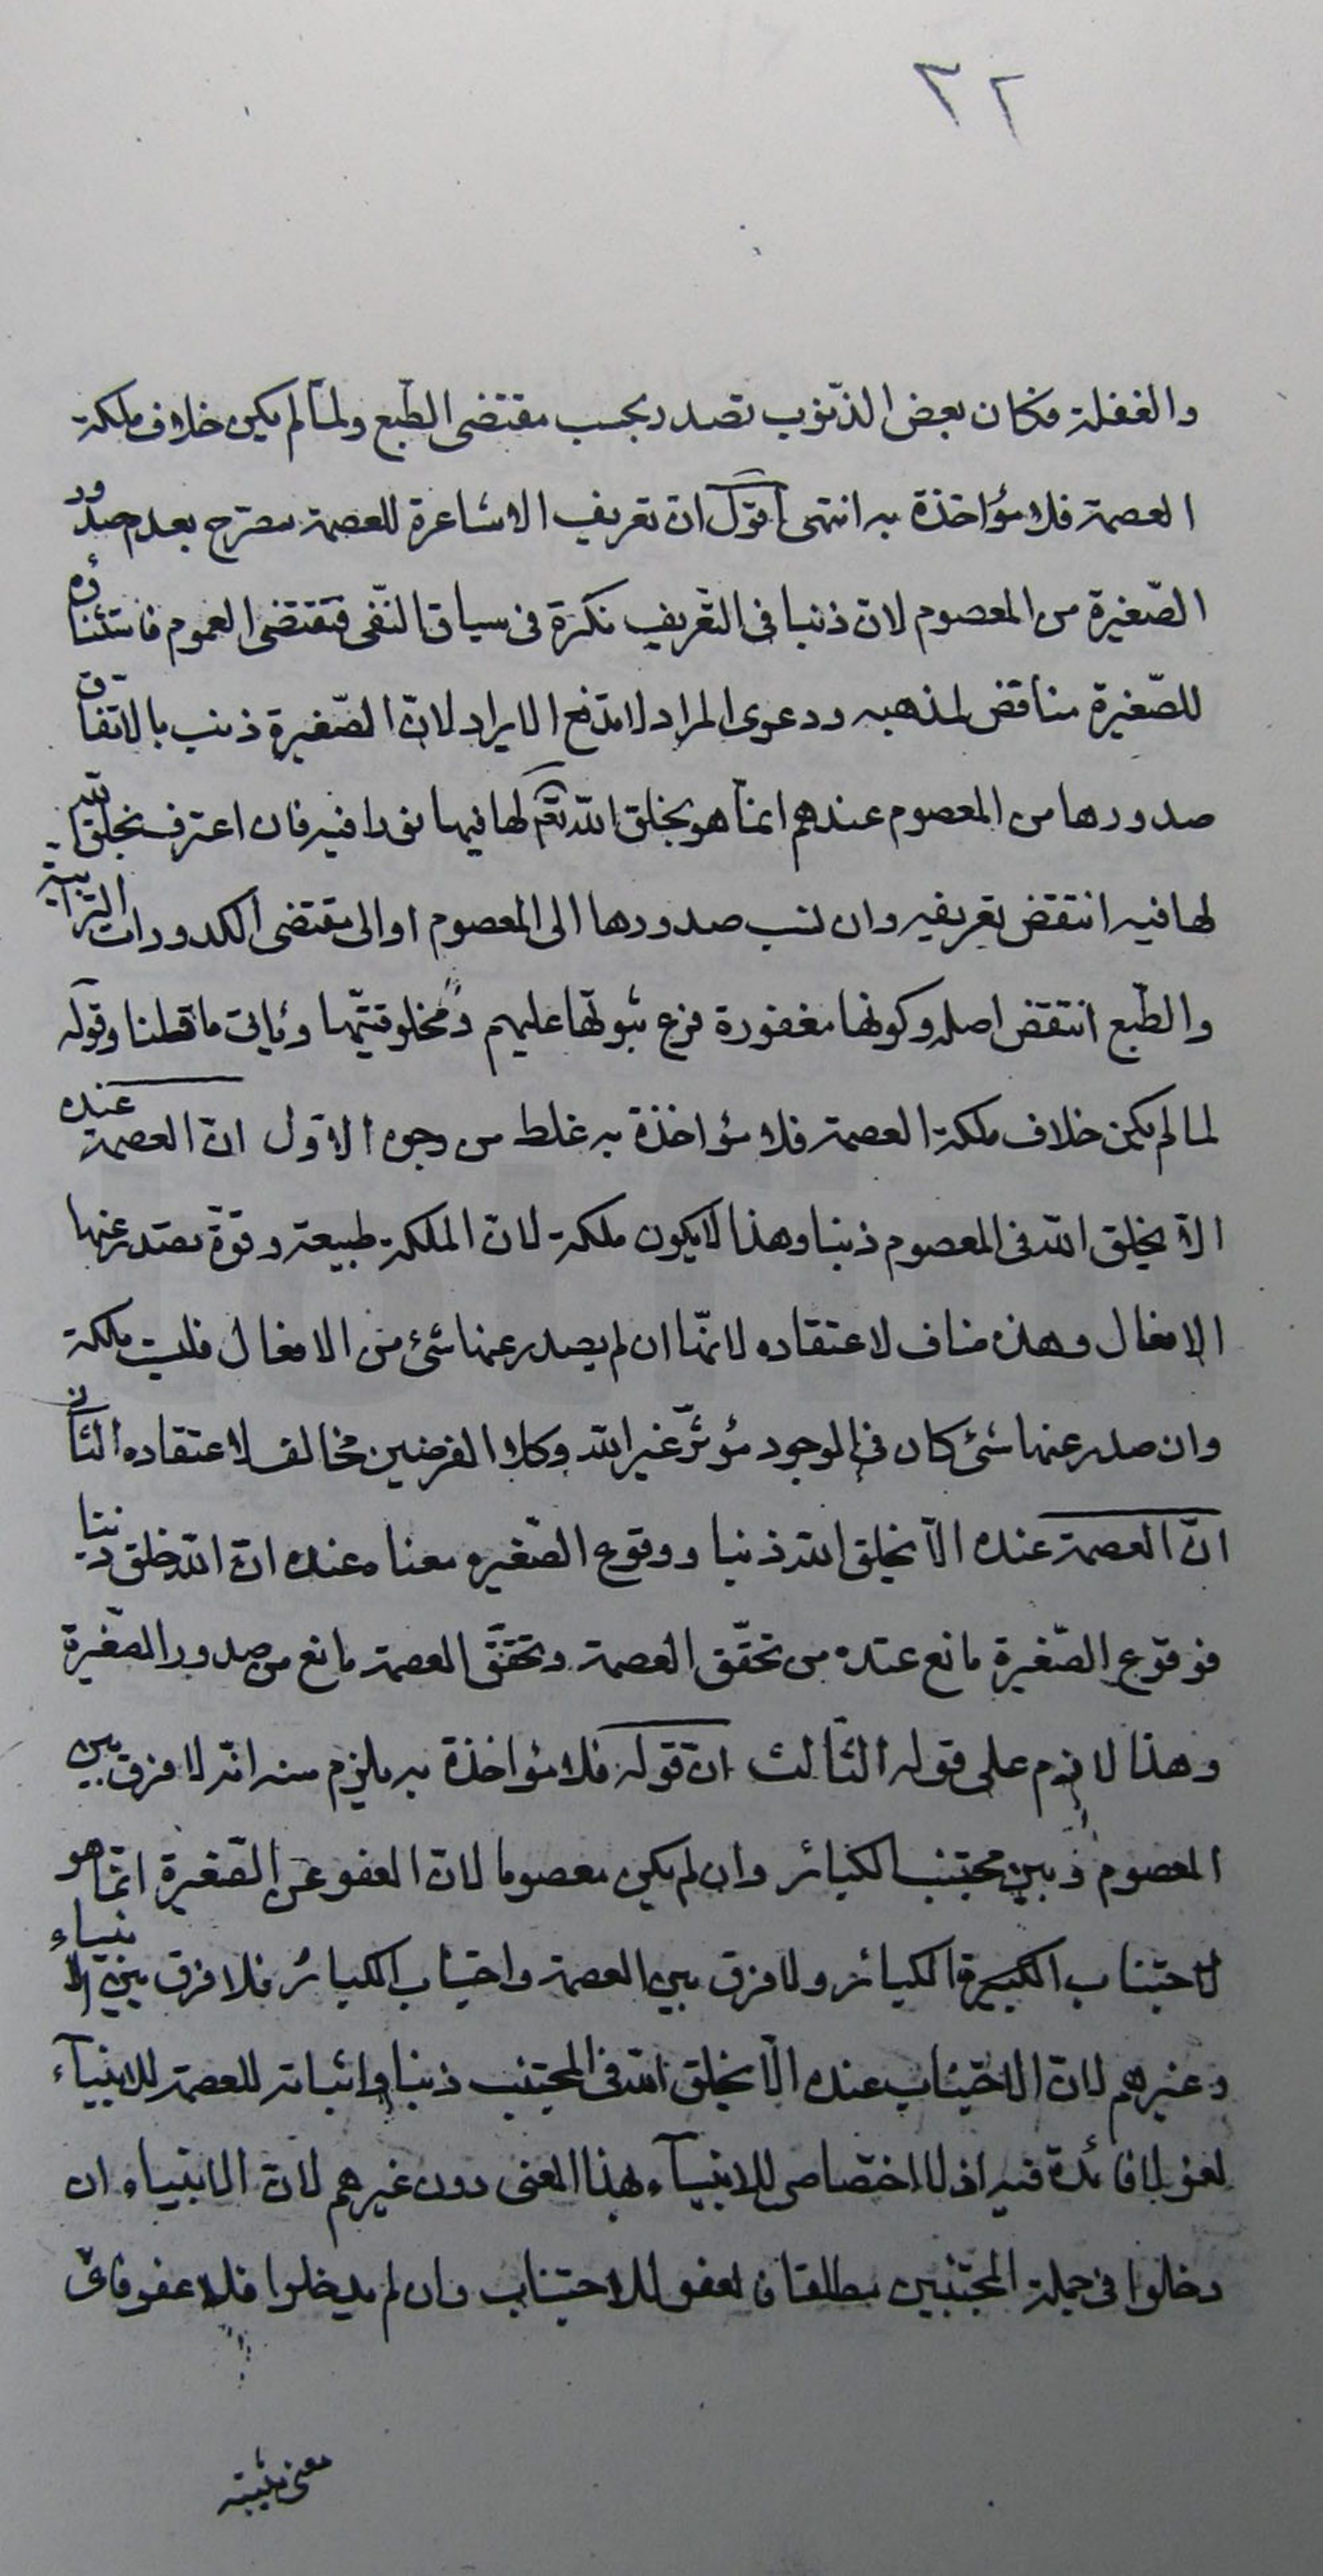 ٣٢
والغفلة فكان بعض الذّنوب تصدر بحسب مقتضى الطّبع ولمّا لم يكن خلاف ملكة
العصمة فلا مؤاخذة به انتهى اقول ان تعريف الاشاعرة للعصمة مصرّح بعدم صدور
الصّغيرة من المعصوم لان ذنبا فى التّعريف نكرة فى سياق النّفى فتقتضى العموم فاستثناؤه
للصّغيرة مناقض لمذهبه ودعوى المراد لا تدفع الايراد لانّ الصّغيرة ذنب بالاتّفاق
صدورها من المعصوم عندهم انمّا هو بخلق اللّه تعم لها فيها نفوذا فيه فان اعترف بخلق اللّه
لها فيه انتقض تعريفه وان نسب صدورها الى المعصوم او الى مقتضى الكدورات الترابية
والطّبع انتقض اصله وكونها مغفورة فرع ثبوتها عليهم ومخلوقيّتها وياتى ما قلنا وقوله
لما لم يكن خلاف ملكة العصمة فلا مؤاخذة به غلط من وجوه الاوّل انّ العصمة عنده
الاّ يخلق اللّه فى المعصوم ذنبا وهذا لا يكون ملكة لانّ الملكة طبيعة وقوّة تصدر عنها
الافعال وهذه مناف لاعتقاده لانّها ان لم يصدر عنها شئ من الافعال فليست ملكة
وان صدر عنها شئ كان فى الوجود مؤثّر غير اللّه وكلا الفرضين مخالف لاعتقاده الثّانى
انّ العصمة عنده الاّ يخلق اللّه ذنبا ووقوع الصّغيره معناه عنده انّ اللّه خلق ذنبا
فوقوع الصّغيرة مانع عنده من تحقّق العصمة وتحقّق العصمة مانع من صدور الصّغيرة
وهذا لازم على قوله الثّالث انّ قوله فلا مؤاخذة به يلزم منه انّه لا فرق بين
المعصوم وبين مجتنب الكبائر وان لم يكن معصوما لانّ العفو عن الصّغيرة انمّا هو
لاجتناب الكبيرة الكبائر ولا فرق بين العصمة واجتناب الكبائر فلا فرق بين الانبياء
وغيرهم لانّ الاجتناب عنده الاّ يخلق اللّه فى المجتنب ذنبا واثباته للعصمة للانبيآء
لغو لا فائدة فيه اذ لا اختصاص للانبيآء بهذا المعنى دون غيرهم لانّ الانبياء ان
دخلوا فى جملة المجتنبين مطلقا فالعفو للاجتناب وان لم يدخلوا فلا عفو فاىّ
معنى يثبته